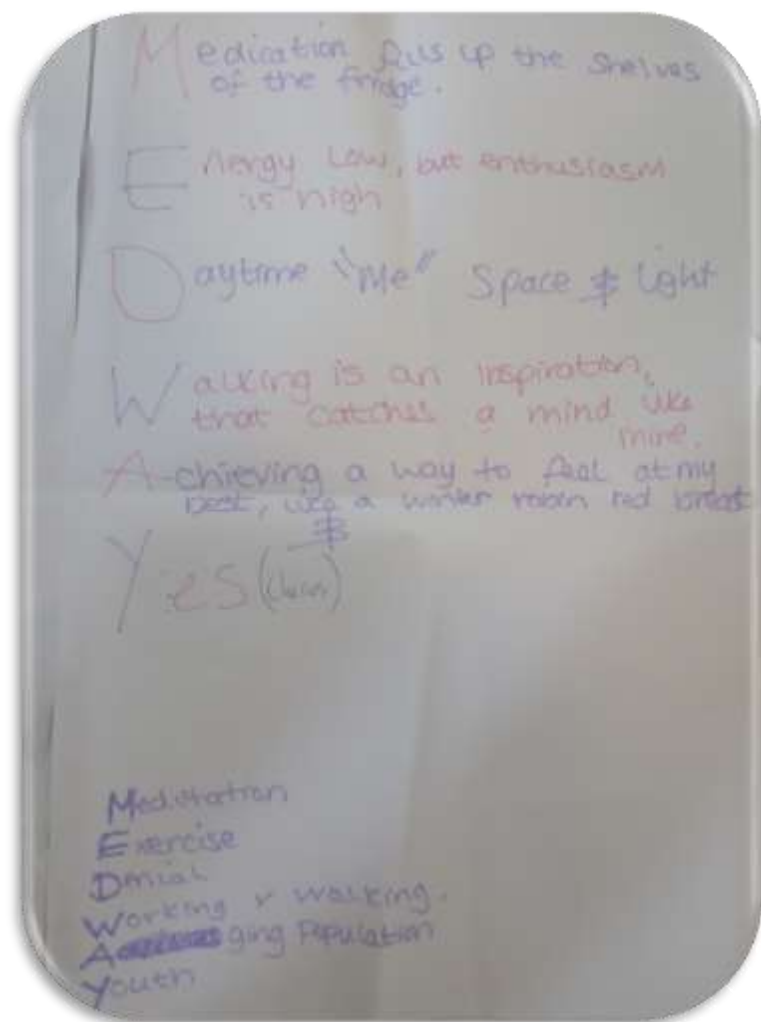 Medication fills up the shelves
of the fridge.
Energy Low, but enthusiasm
is high
Daytime "Me" Space & Light
Walking is an inspiration,
that catches a mind like
mine.
A-chieving a way to feel at my
best, like a winter robin red breast
&
Yes
Meditation
Exercise
Denial
Working & walking.
Aging Population
Youth